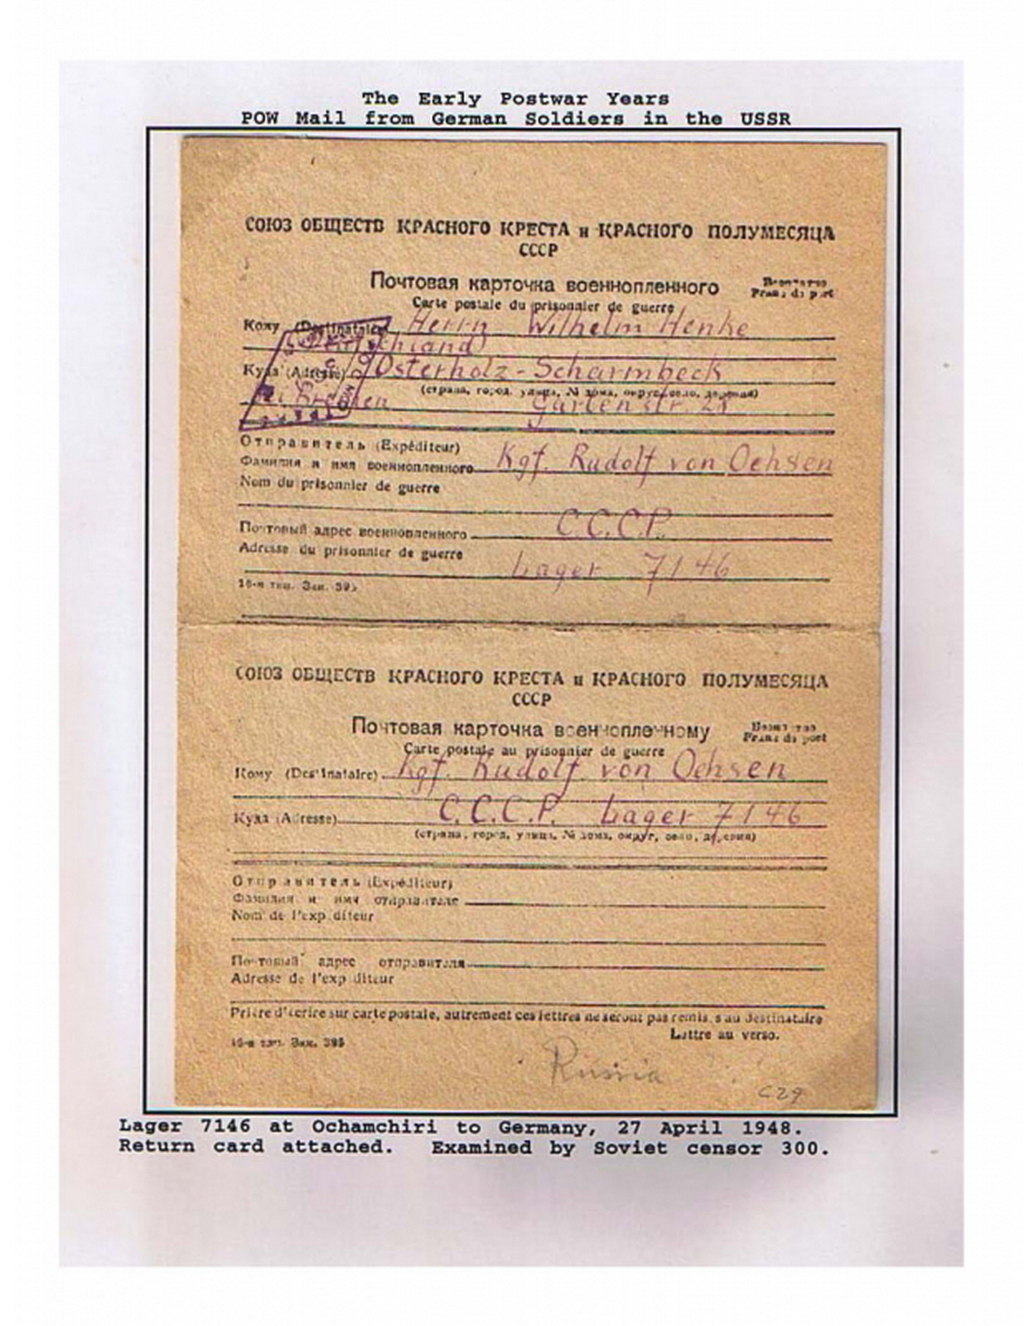 The Early Postwar Years
POW Mail from German Soldiers in the USSR
СОЮЗ ОБЩЕСТВ КРАСНОГО КРЕСТА и КРАСНОГО ПОЛУМЕСЯЦА
СССР
Почтовая карточка военнопленного
Carte postale du prisonnier de guerre
Кому (Destinataire) Herrn Wilhelm Henke
Куда (Adresse) Osterholz-Scharmbeck
(страна, город, улица, № дома, округ, село, деревня)
Bremen Gartenstr. 28
Отправитель (Expéditeur)
Фамилия и имя военнопленного Kgf. Rudolf von Oehsen
Nom du prisonnier de guerre
Почтовый адрес военнопленного С.С.С.Р.
Adresse du prisonnier de guerre
Lager 7146
16-я тип. Зак. 395
СОЮЗ ОБЩЕСТВ КРАСНОГО КРЕСТА и КРАСНОГО ПОЛУМЕСЯЦА
СССР
Почтовая карточка военнопленному
Carte postale au prisonnier de guerre
Кому (Destinataire) Kgf. Rudolf von Oehsen
Куда (Adresse) С.С.С.Р. Lager 7146
(страна, город, улица, № дома, округ, село, деревня)
Отправитель (Expéditeur)
Фамилия и имя отправителя
Nom de l'exp diteur
Почтовый адрес отправителя
Adresse de l'exp diteur
Prière d'écrire sur carte postale, autrement ces lettres ne seront pas remis s au destinataire
Lettre au verso.
16-я тип. Зак. 395
Russia
C29
Lager 7146 at Ochamchiri to Germany, 27 April 1948.
Return card attached. Examined by Soviet censor 300.